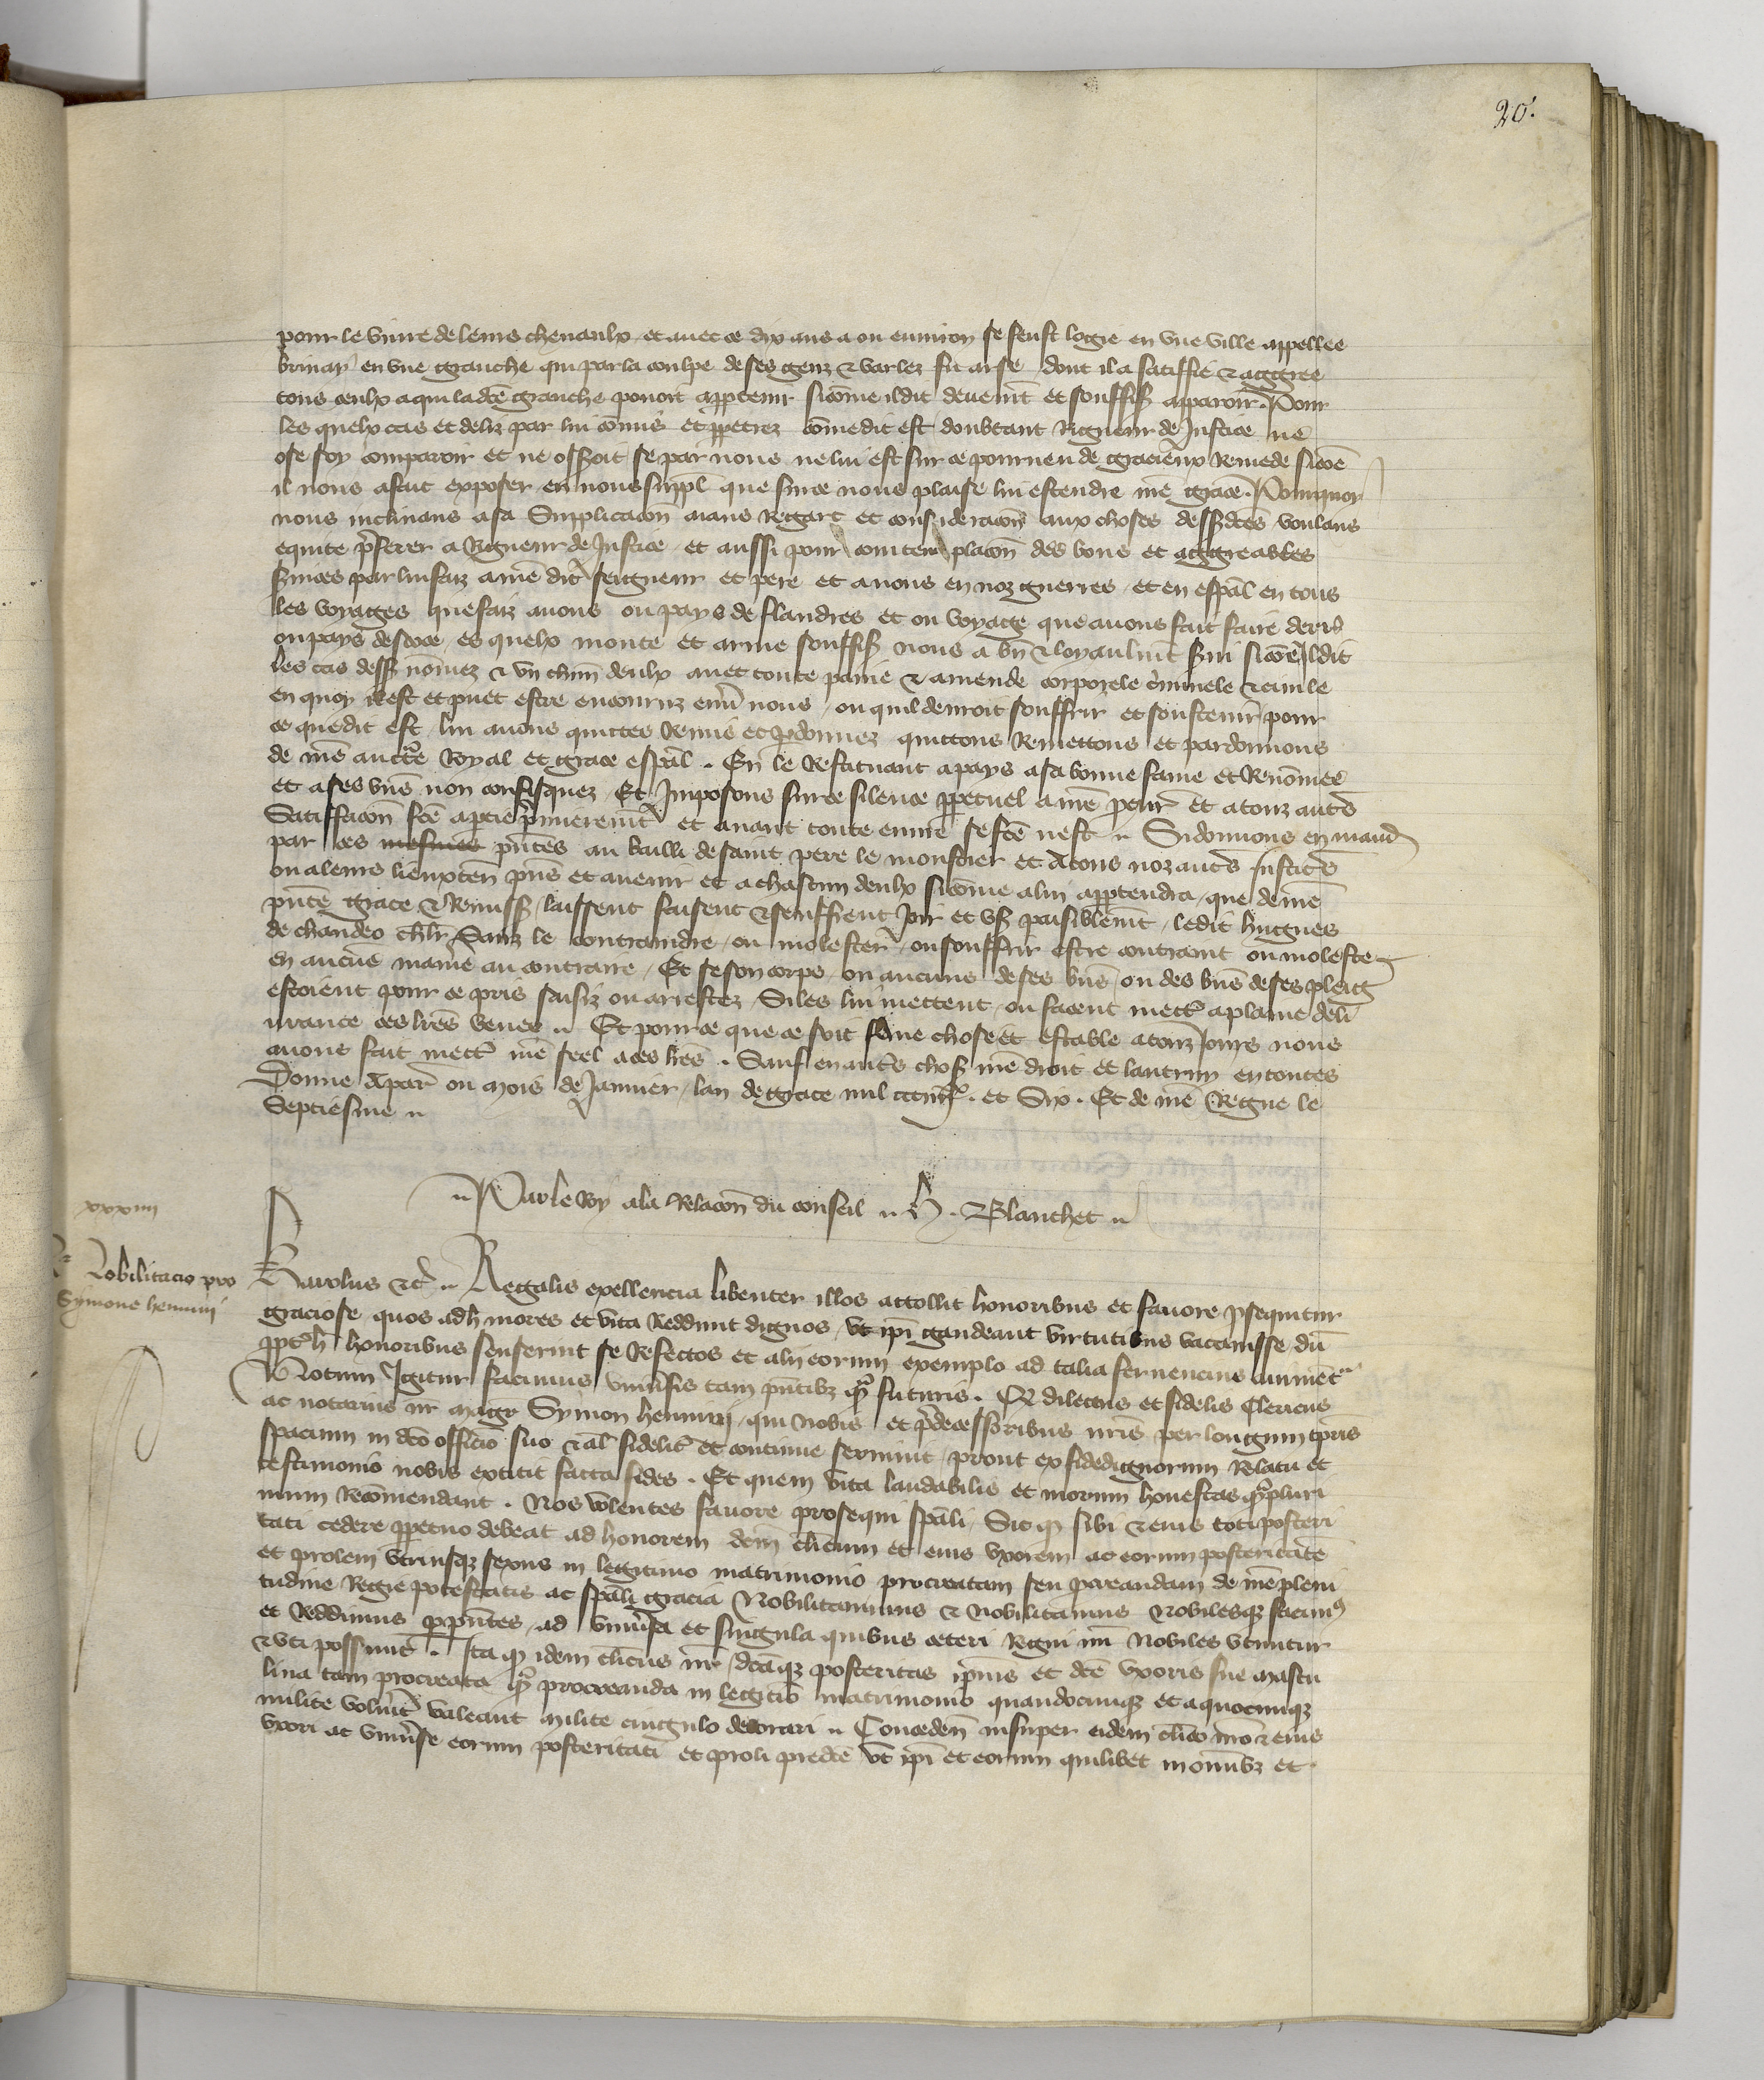 20.
pour le vivre de leurs chevaulx et avec ce dix ans a ou environ se feust logie en une ville appellee
brinay en une granche qui par la coulpe de ses genz & varlez fu arse dont il a satiffie & aggree
tous ceulx a qui ladcē granche povoit appartenir sicōme il dit devemt et souffiß apparoir. Pour
les quelx cas et deliz par lui cōmis et ppetrez cōme dit est doubtant rigueur de Justice ne
ose soy comparoir et ne oseroit se par nous ne lui est sur ce pourveu de gracieux remede sicōe
il nous a fait exposer en nous suppl que sur ce nous plaise lui estendre nrē grace. Pourquoy
nous inclinans a sa supplicacōn aians regart et consideracōn aux choses dessßdcēs voulans
equite pferer a rigueur de Justice et aussi pour contemplacōn des bons et aggreables
ßvices par lui faiz a nrē dit seigneur et pere et a nous en noz guerres et en espāl en tous
les voyages que faiz avons ou pays de flandres et ou voyage que avons fait faire derrē
ou pays descoce es quelx monte et arme souffiß nous a bn̄ & loyaulmt ßvi sicōe Il dit
les cas dessß nōmez & un chūn deulx avec toute paine & amende corporele criminele & civile
en quoy il est et puet estre encouruz envs nous ou quil devroit souffrir et soustenir pour
ce que dit est lui avons quittes remis et pdonnez quittons remettons et pardonnons
de nrē auctē Royal et grace espāl. En le restituant a pays a sa bonne fame et renōmee
et a ses bn̄s non confisquez Et Imposons sur ce silence ppetuel a nrē pcur et a touz autēs
Satiffacōn fcē a ptie pmierem̄t et avant toute euvre se fcē nest Si donnons en mand
par ces mesmes pn̄tes au bailli de saint pere le monstier et a tous noz autēs Justicēs
ou a leurs lieuxten̄ pn̄s et avenir et a chascun deulx sicōme a lui appartendra que de nrē
pn̄te grace & remiss laissent facent & seuffrent joir et uß paisiblemt ledit hugues
de chandeo chlr Sanz le contraindre ou molester ou souffrir estre contraint ou moleste
en aucune maniē au contraire Et se son corps ou aucuns de ses bn̄s ou des bn̄s de ses pleig
estoient pour ce pris saisiz ou arrestez Si les lui mettent ou facent mectē a plaine deli
vrance ces lrēs veues Et pour ce que ce soit ferme chose et estable a touz jours nous
avons fait mectē nrē seel a ces lrēs. Sauf en autēs choß nrē droit et lautruy en toutes
Donne a par ou mois de Janvier lan de grace mil ccciiijxx. et Six. Et de nrē Regne le
Septiesme
Par le Roy a la relacōn du conseil H. Blanchet
xxxiiii
Nobilitacio pro
Symone hennini
Karolus &c Regalis exellencia libenter illos attollit honoribus et favore psequitur
graciose quos ad h mores et vita reddunt dignos, ut ipī gaudeant virtutibus vacavisse dū
ppter h honoribus senserint se refectos et alii eorum exemplo ad talia fervencius animent
Notum Igitur facimus univsis tam pn̄tibz qm̄ futuris. Q dilectus et fidelis Clericus
ac notarius nr magr Symon hennini, qui nobis et pdecessoribus nris per longum tpris
spacium in dcō officio suo & al fidelit et continue servivit, prout ex fidedignorum relatu et
testimonio nobis extitit facta fides. Et quem vita laudabilis et morum honestas qmpluri
mum recōmendant. Nos volentes favore prosequi spāli, Sic q sibi & eius toti posteri
tati cedere ppetuo debeat ad honorem dcm̄ clīcum et eius uxorem ac eorum posteritatē
et prolem utriusqz sexus in legitimo matrimonio procreatam seu pcreandam de nrē pleni
tudine Regie potestatis ac spāli gracia Nobilitavimus & nobilitamus Nobilesqz facimꝰ
et reddimus p pn̄tes, ad univsa et singula quibus ceteri Regni nri Nobiles utuntur
& uti possunt. Ita q idem clīcus nr, dcāqz posteritas ipīus et dcē uxoris sue mascu
lina tam procreata qm̄ procreanda in legitīo matrimonio quandocunqz et a quocunqz
milite volūīt valeant milicē cingulo decorari Conceden̄ insuper eidem clīco nro & eius
uxori ac univse eorum posteritati et proli predcē ut ipī et eorum quilibet in omnibz et